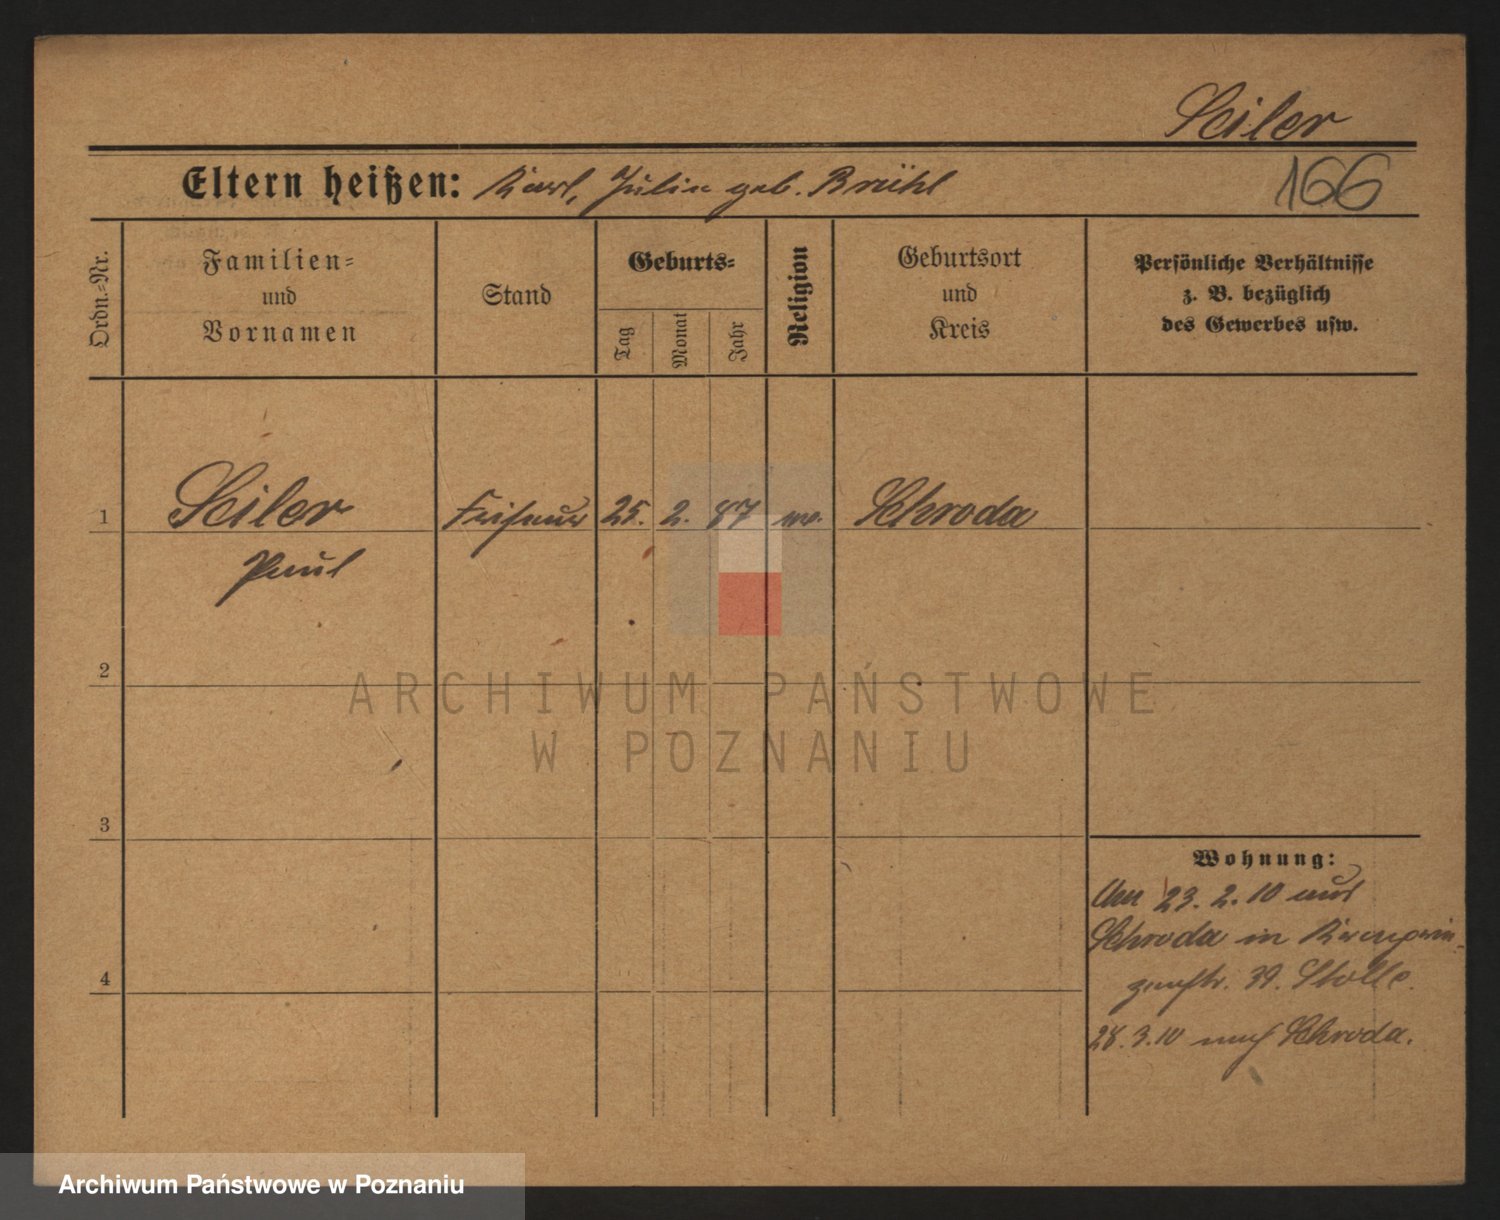 Seiler
Eltern heißen: Karl, Julie geb. Brühl
166
Ordn.=Nr.
Familien=
und
Vornamen
Stand
Geburts=
Tag
Monat
Jahr
Religion
Geburtsort
und
Kreis
Persönliche Verhältnisse
z. B. bezüglich
des Gewerbes usw.
1
Seiler
Friseur
25.
2.
87
Schroda
Paul
2
ARCHIWUM PAŃSTWOWE
W POZNANIU
3
Wohnung:
Am 23. 2. 10 aus
Schroda in Kronprin-
zenstr. 39. Stolle.
4
28. 3. 10 nach Schroda.
Archiwum Państwowe w Poznaniu